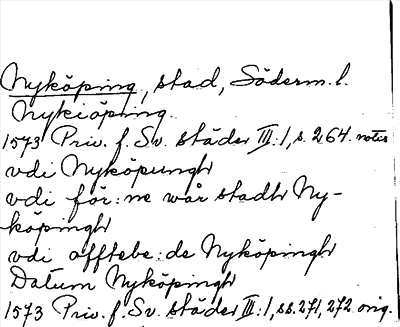 Nyköping, stad, Söderm. l.
Nykiöping
1573 Priv. f. Sv. städer III:1, s. 264. notis
vdi Nyköpungh
vdi för:ne wår stadh Ny-
köpingh
vdi offtebe:de Nyköpingh
Datum Nyköpingh
1573 Priv. f. Sv. städer III:1, ss. 271, 272. orig.